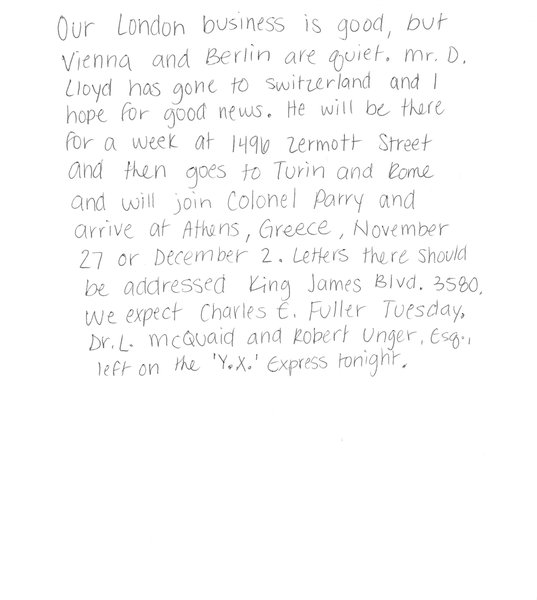 Our London business is good, but
Vienna and Berlin are quiet. mr. D.
Lloyd has gone to switzerland and I
hope for good news. He will be there
for a week at 1496 Zermott Street
and then goes to Turin and Rome
and will join Colonel Parry and
arrive at Athens, Greece, November
27 or December 2. Letters there should
be addressed King James Blvd. 3580.
We expect Charles E. Fuller Tuesday.
Dr. L. McQuaid and Robert Unger, Esq.,
left on the 'Y.X.' Express tonight.